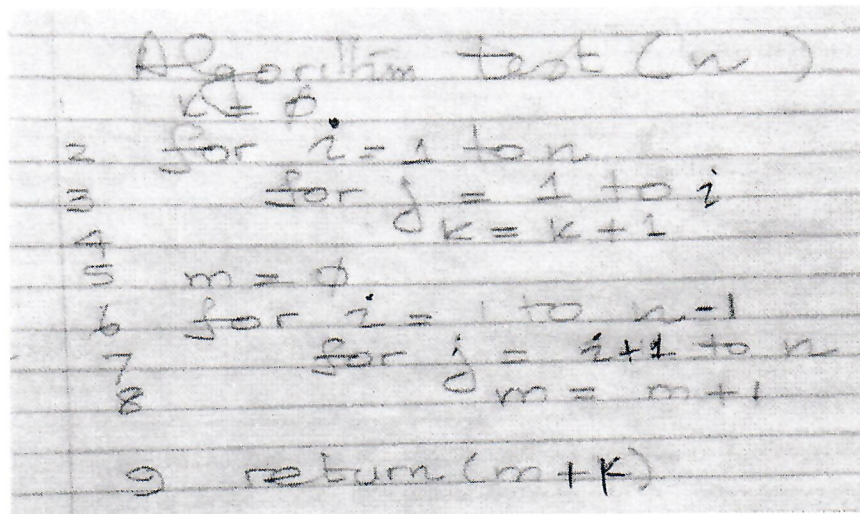 Algorithm test (n)
k = ø
2 for i = 1 to n
3 for j = 1 to i
4 k = k + 1
5 m = ø
6 for i = 1 to n-1
7 for j = i+1 to n
8 m = m + 1
9 return (m + k)